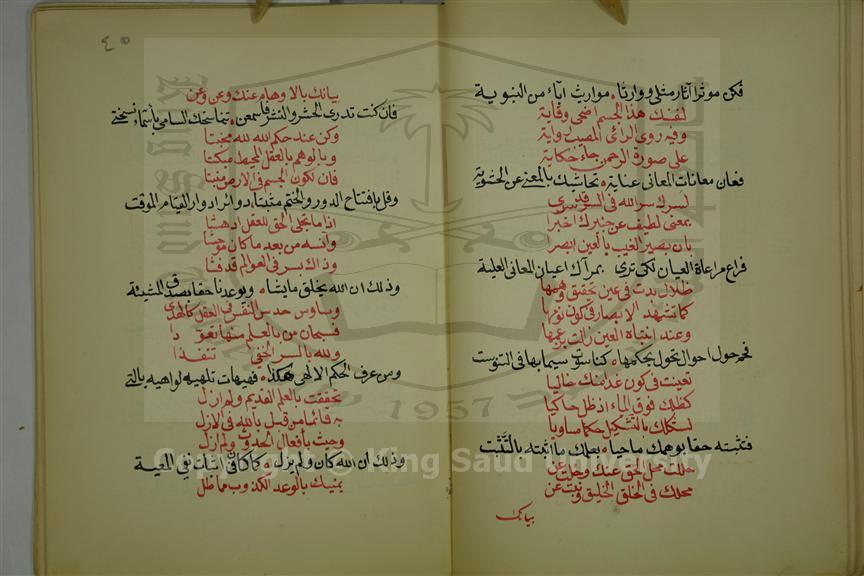 فكن موثرا آثار مثلى ووارثا مواريث آباء من النبوية
لنفسك هذا الجسم ضحى وقاية
وفيه روى الرائى المصيب رواية
على صورة الرحمن جاءت حكاية
فعان معانات المعانى عناية تحاشيك بالمعنى عن الحشوية
لسرك سر الله فى السر قد سرى
بمعنى لطيف عن خبيرك اخبرا
بان بصير الغيب بالعين ابصر
فراع مراعاة العيان لكى ترى بمرآك اعيان المعانى العلية
ظلال بدت فى عين تحقيق وهمها
كما تشهد الابصار فى كون نومها
وعند انتباه العين زالت بزعمها
فحم حول احوال تحول بحكمها
تعينت فى كون عدمنك خاليا
كظلك فوق الماء اذ ظل حاكيا
لشكلك بالتشكيل حكما مساويا
فتثبته حقا بوهمك ماحيا بعلمك ما اثبته بالتثبت
حللت محل الحق عنك وحلت عن
محلك فى الخلق الخليق وبنت عن
بيانك
٤٥
بيانك بالاوهام عنك وعن وعن
فان كنت تدرى الحشر والنشر فاسمعن تناسخك السامى بأسماء نسختى
وكن عند حكم الله لله مخبتا
وبالوهم بالعقل المحيط مبكتا
فان لكون الجسم فى الارض منبتا
وقل بافتتاح الدور والختم مثبتا دوائر ادوار القيام الموقت
اذا ما تجلى الحق للعقل ادهشا
وآنسه من بعد ما كان موحشا
وذاك بسر فى العوالم قد فشا
وذلك ان الله يخلق مايشاء ويوعدنا حقا بصدق المشيئة
وساوس حدس النفس فى العقل كالهذى
فسبحان من بالعلم منها تعوذا
ولله بالسر الخفى تنفذا
ومن عرف الحكم الالهى هكذا فهيهات تلهيه لواهيه بالتى
تحققت بالعلم القديم ولم ازل
به قائما من قبل بالله فى الازل
وجئت بأفعال الحدوث ولم ازل
وذلك ان الله كان ولم يزل كما كان اثبات فى المعية
يمنيك بالوعد الكذوب مماطل
Copyright © King Saud University
1957